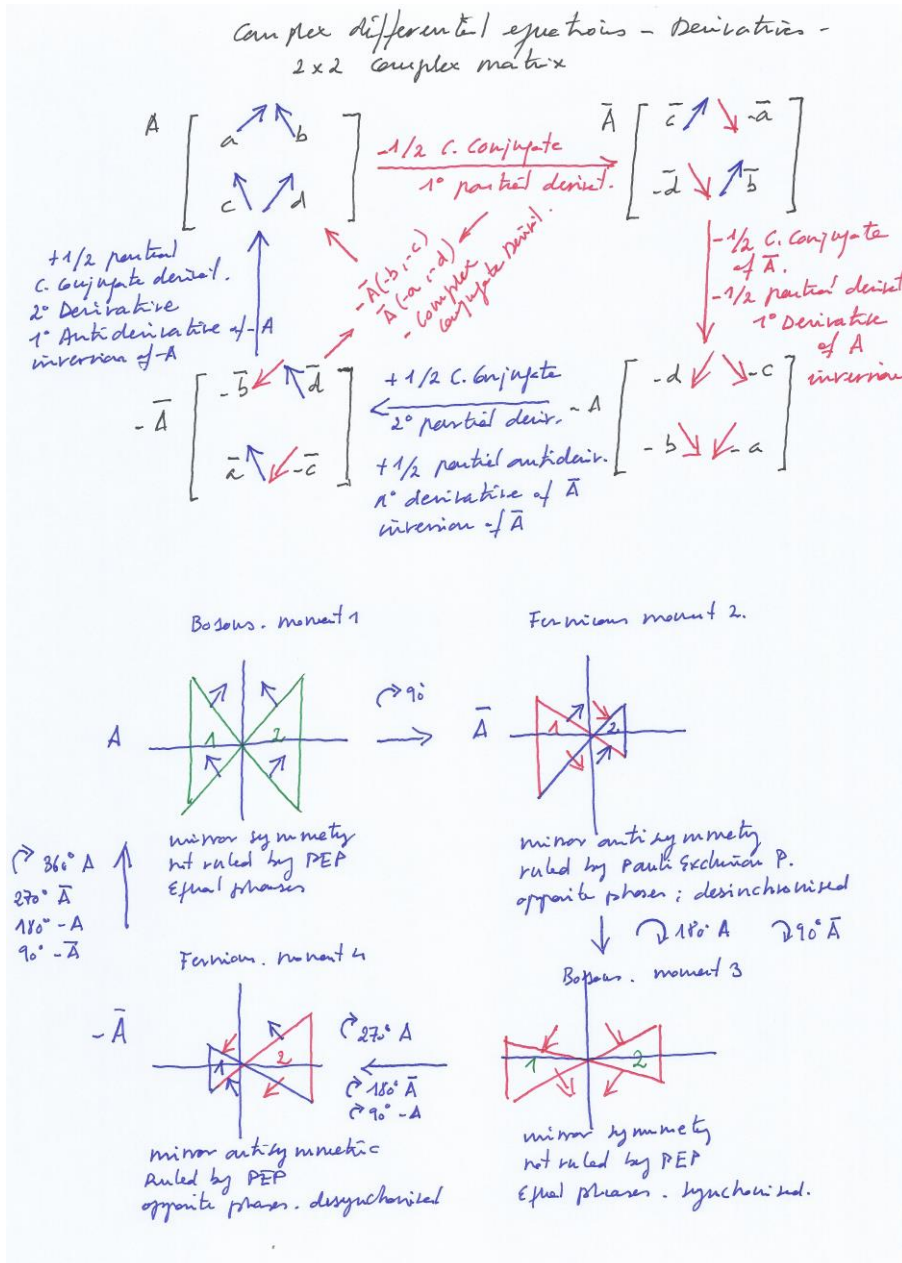 Complex differential equations - Derivatives -
2 x 2 complex matrix
A
a b
c d
-1/2 C. Conjugate
1° partial derivat.
Ā
c̄ -ā
-d̄ b̄
+1/2 partial
C. Conjugate derivat.
2° Derivative
1° Antiderivative of -A
inversion of -A
-Ā(-b, -c)
Ā(-a, -d)
- Complex
Conjugate Derivat.
-1/2 C. Conjugate
of Ā.
-1/2 partial derivat
1° Derivative
of A
inversion
-Ā
-b̄ d̄
ā -c̄
+1/2 C. Conjugate
2° partial deriv.
+1/2 partial antideriv.
1° derivative of Ā
inversion of Ā
-A
-d -c
-b -a
Bosons. moment 1
Fermions moment 2.
A
1 2
↷ 90°
Ā
1 2
mirror symmety
not ruled by PEP
Equal phases
mirror antisymmety
ruled by Pauli Exclusion P.
opposite phases; desinchronised
↷ 360° A
270° Ā
180° -A
90° -Ā
↷ 180° A ↷ 90° Ā
Fermions. moment 4
Bosons. moment 3
-Ā
1 2
↷ 270° A
↷ 180° Ā
↷ 90° -A
1 2
mirror antisymmetric
Ruled by PEP
opposite phases. desynchronised
mirror symmety
not ruled by PEP
Equal phases. synchronised.